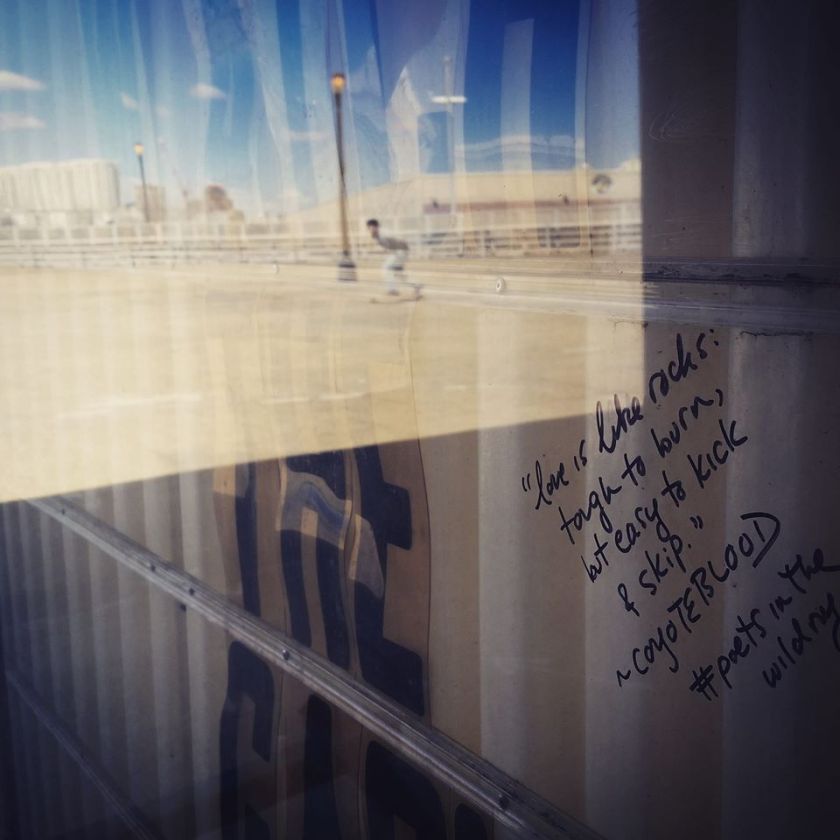 "love is like rocks:
tough to burn,
but easy to kick
& skip."
~COYOTEBLOOD
#poets in the
wild ny